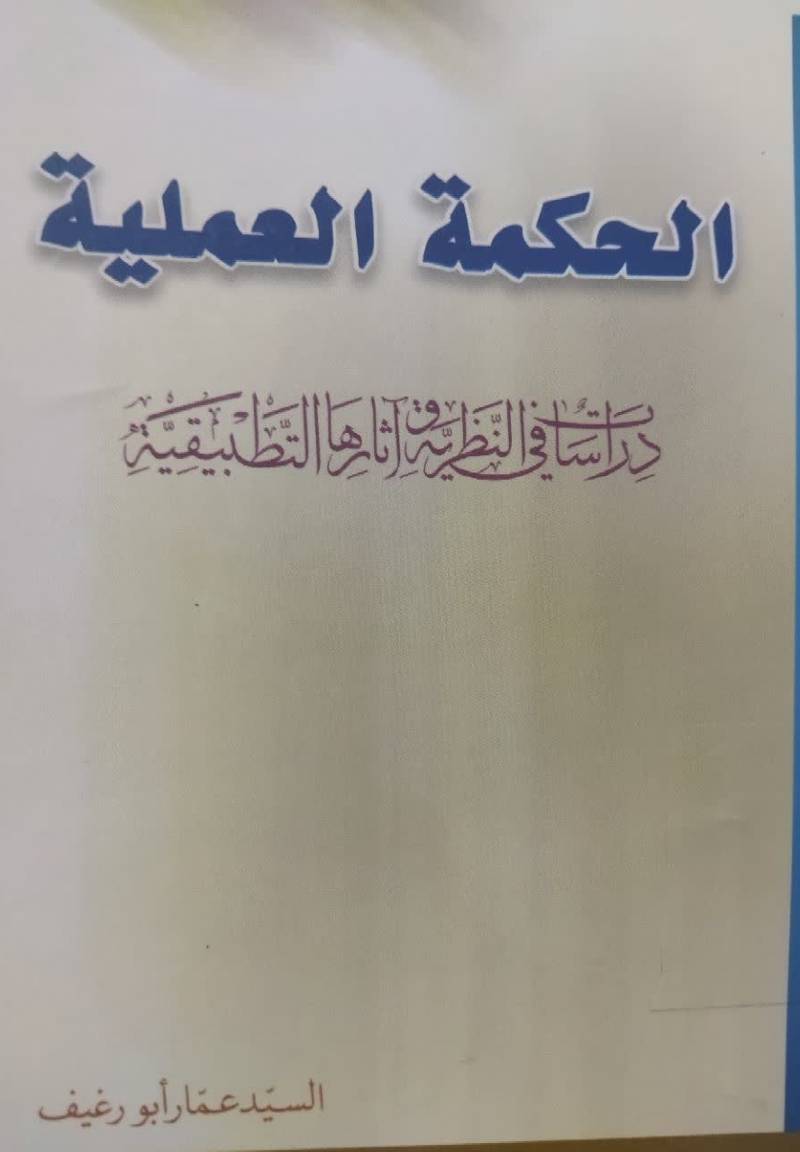 الحكمة العملية
دِرَاسَات في النَّظَريَّةِ وَآثارِهَا التَّطبيقِيَّةِ
السيّد عمّار أبو رغيف